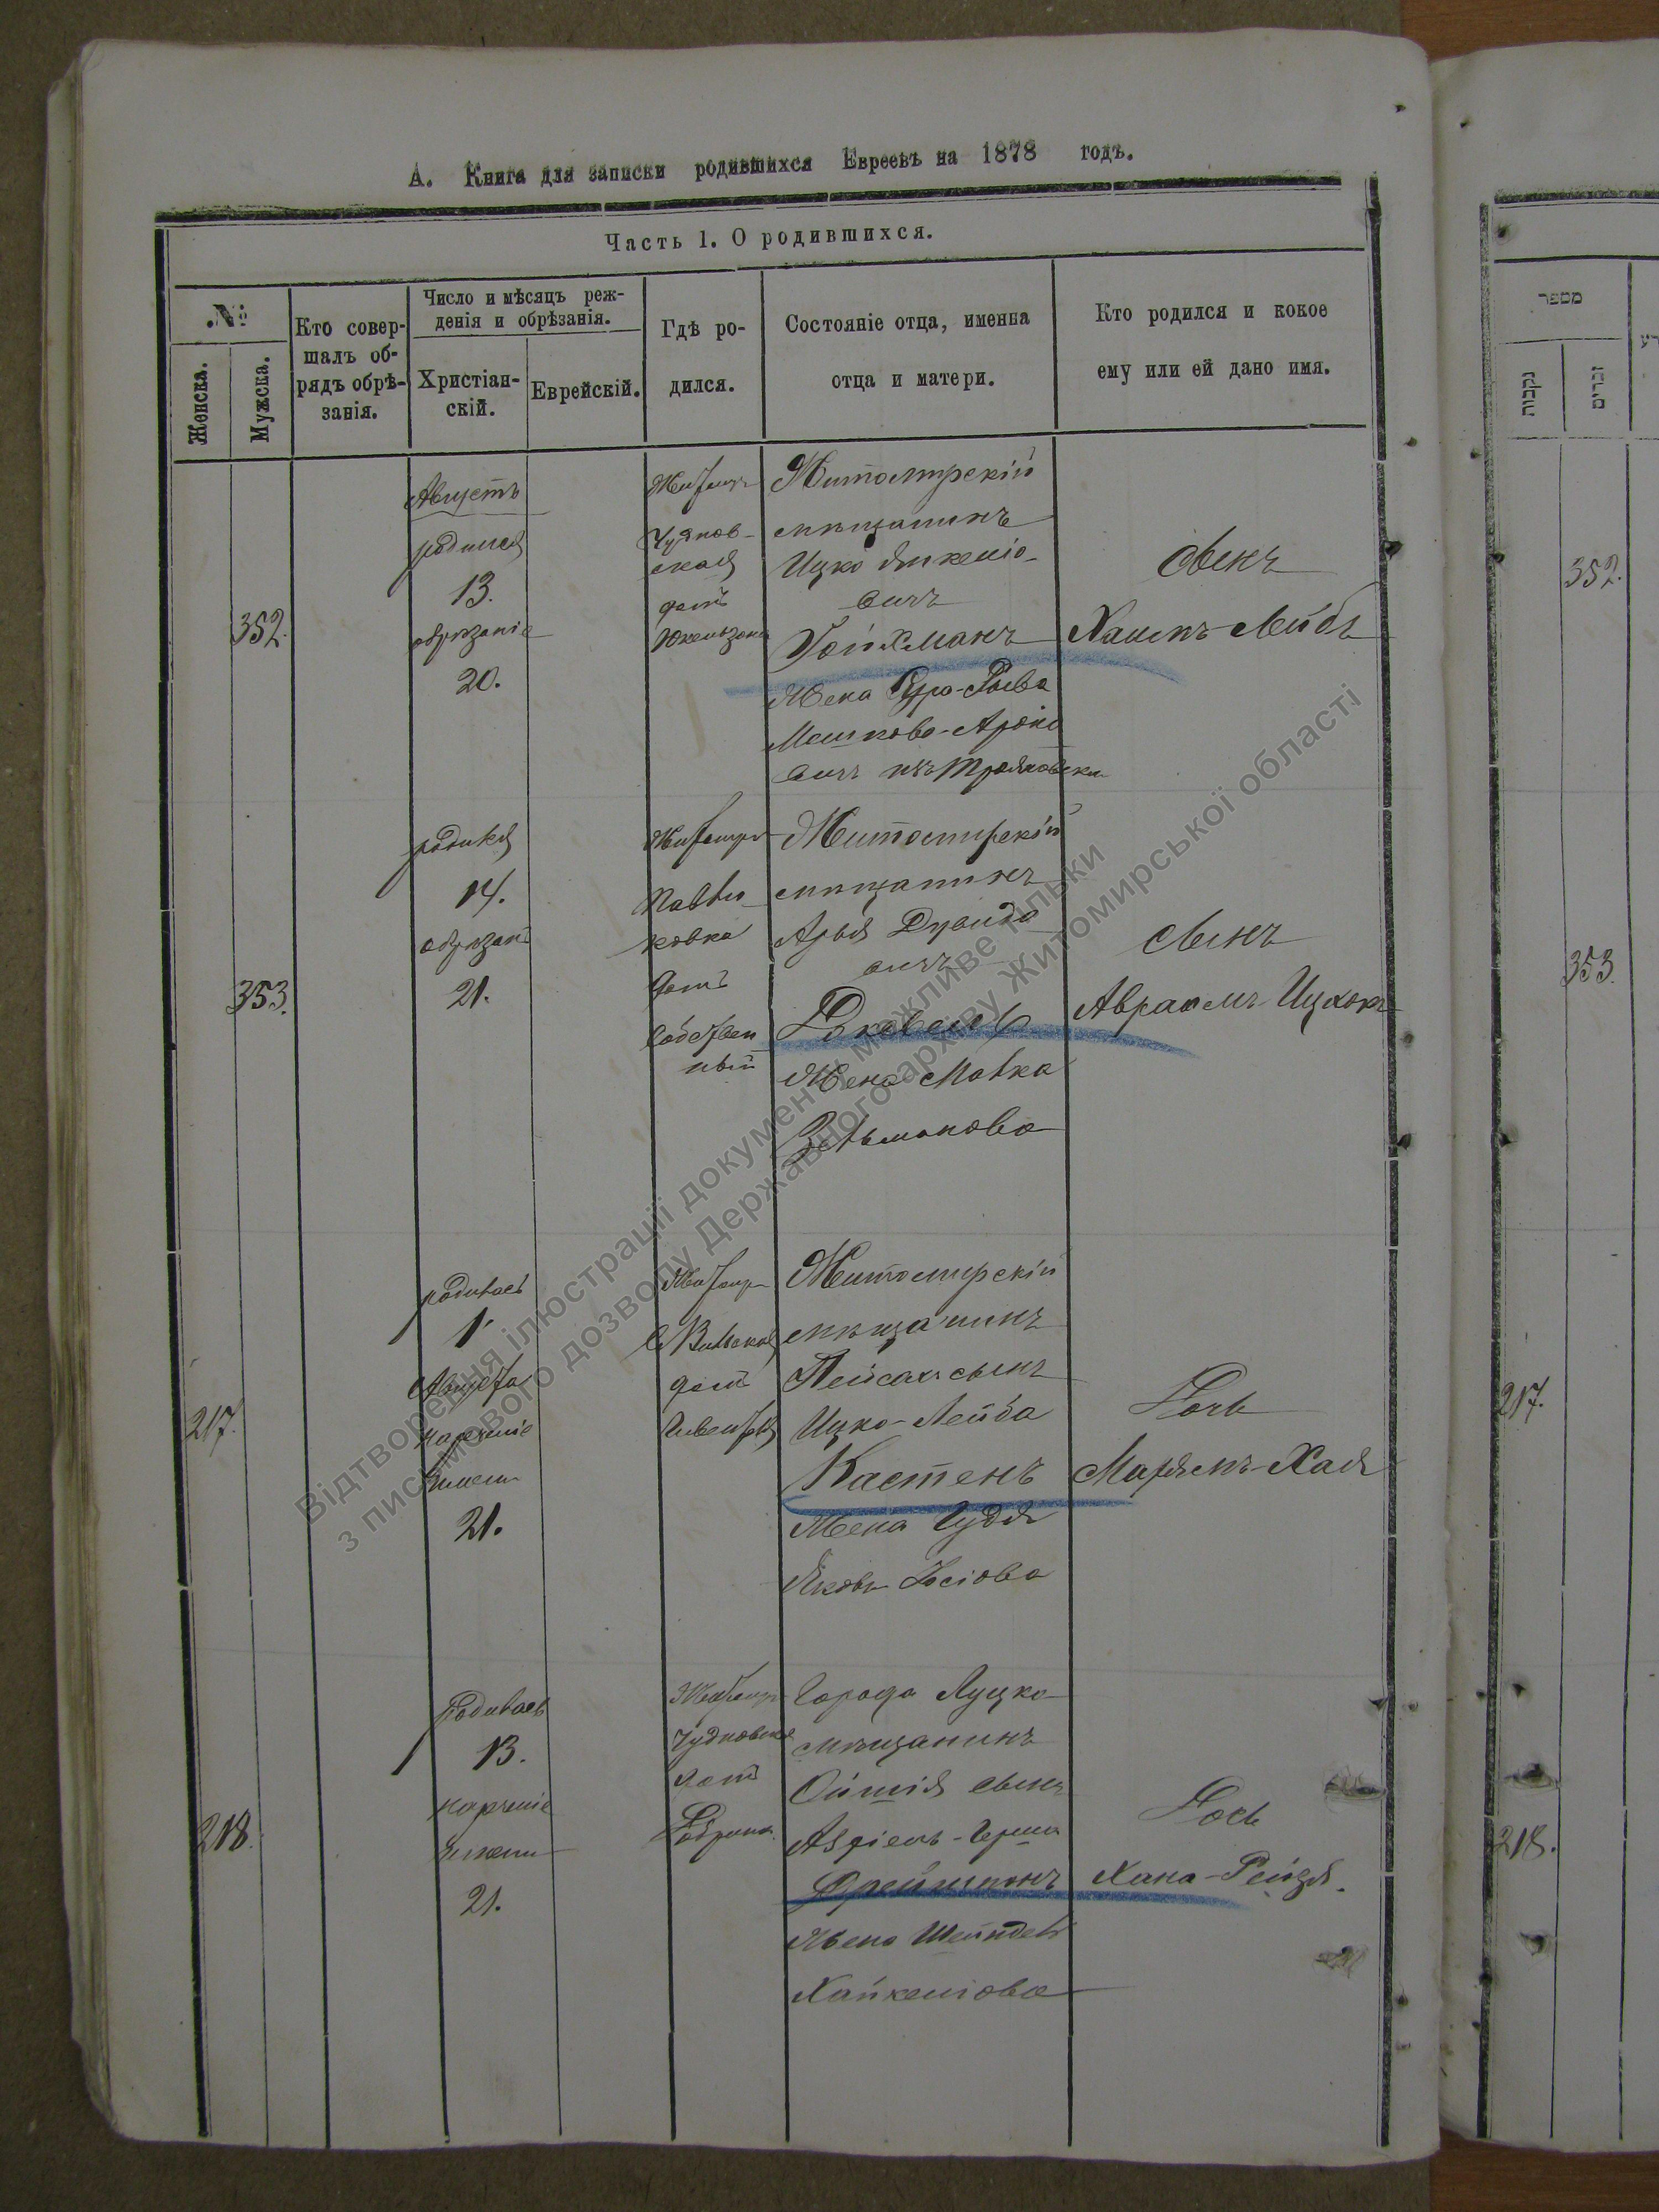 А. Книга для записки родившихся Евреевъ на 1878 годъ.
Часть 1. О родившихся.
№
Женска.
Мужска.
Кто совер-
шалъ об-
рядъ обрѣ-
занія.
Число и мѣсяцъ реж-
денія и обрѣзанія.
Христіан-
скій.
Еврейскій.
Гдѣ ро-
дился.
Состояніе отца, именна
отца и матери.
Кто родился и кокое
ему или ей дано имя.
352.
Августъ
родился
13.
обрѣзаніе
20.
Чуднов-
ская
домъ
Житомирскій
мѣщанинъ
Ицко
вичъ
Гойхманъ
Жена
Мошкова-Ароно
вичъ изъ
Сынъ
Хаимъ-Лейбъ
353.
родился
14.
обрѣзан
21.
Павли
ковка
домъ
собствен
ный
Житомирскій
мѣщанинъ
Арья Дувидо
вичъ
Жена Малка
Зельманова
Сынъ
Авраамъ-Ицхокъ
217.
родилась
1
Августа
нареченіе
имени
21.
домъ
Житомирскій
мѣщанинъ
Пейсахъ сынъ
Ицко-Лейба
Кастенъ
Жена Гудя
Янкова Іосіова
Дочь
Марьямъ-Хая
218.
Родилась
13.
нареченіе
имени
21.
Чудновская
домъ
Города Луцка
мѣщанинъ
сынъ
Жена Шейндель
Хайкелiова
Дочь
Хана-Рейзя.
מספר
נקבות
זכרים
352.
353.
217.
218.
Відтворення ілюстрації документу можливе тільки
з письмового дозволу Державного архіву Житомирської області